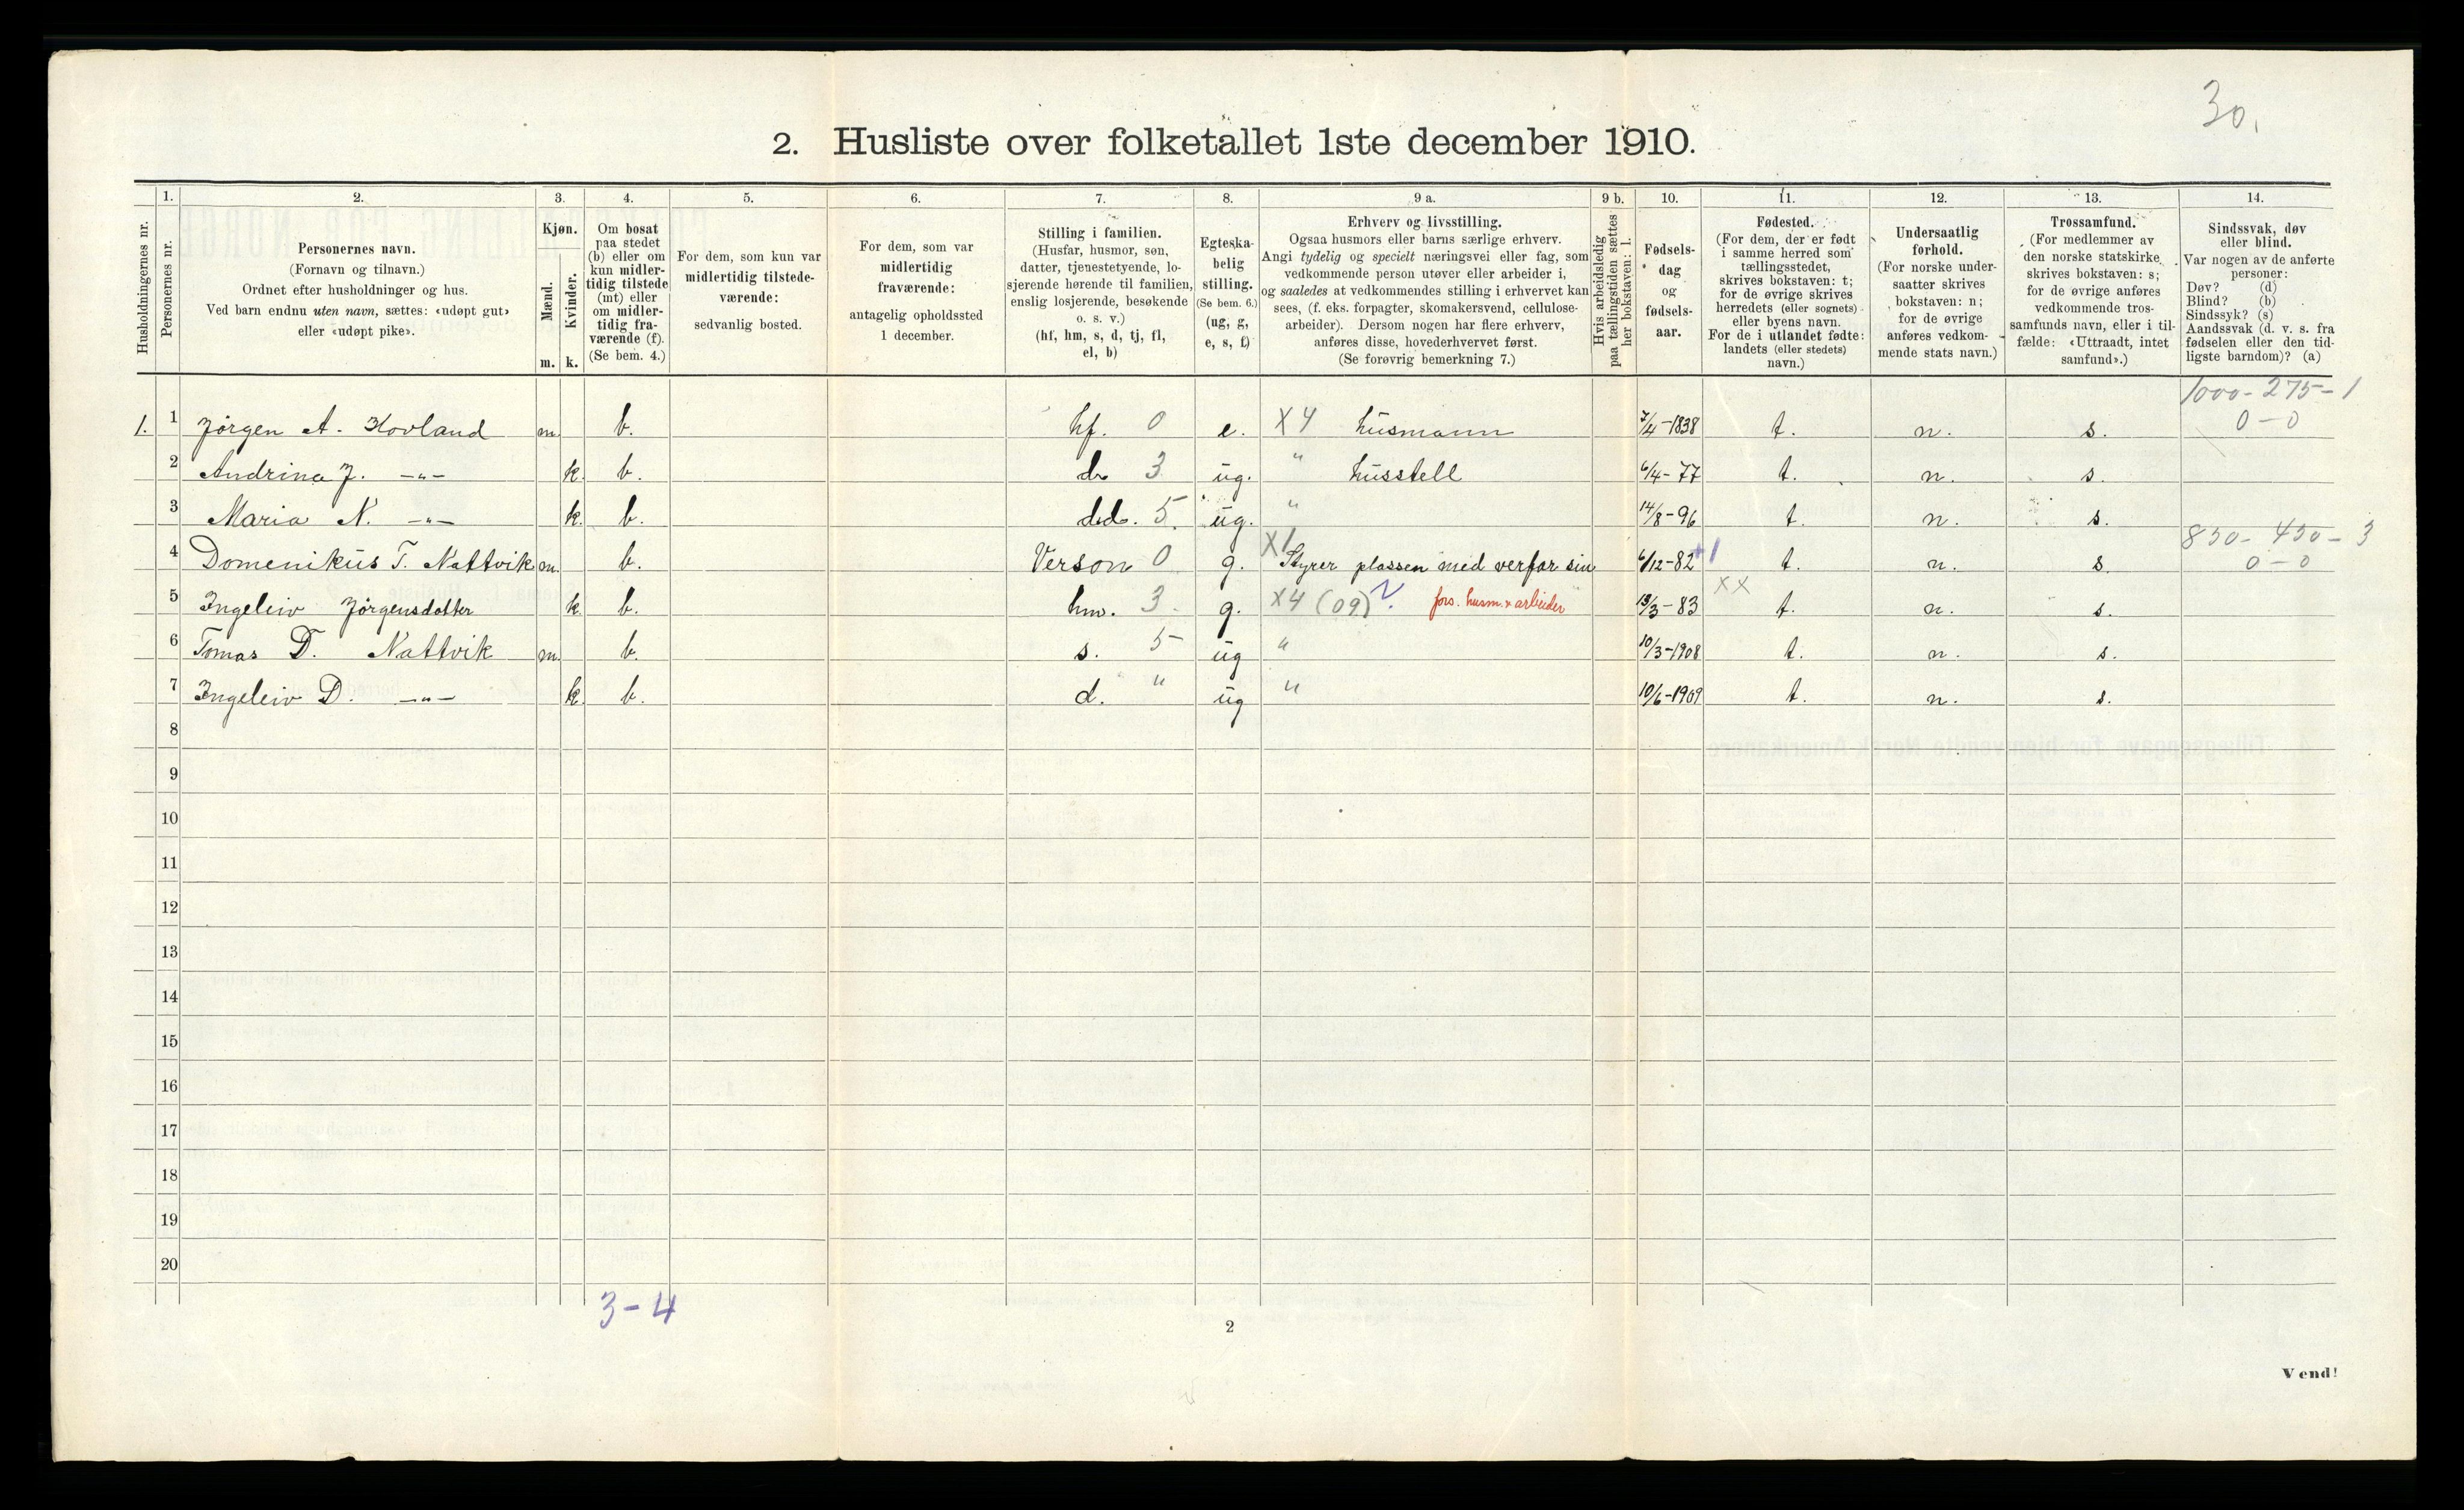 30.
2. Husliste over folketallet 1ste december 1910.
Husholdningernes nr.
1.
Personernes nr.
2.
Personernes navn.
(Fornavn og tilnavn.)
Ordnet efter husholdninger og hus.
Ved barn endnu uten navn, sættes: «udøpt gut»
eller «udøpt pike».
3.
Kjøn.
Mænd.
Kvinder.
m. k.
4.
Om bosat
paa stedet
(b) eller om
kun midler-
tidig tilstede
(mt) eller
om midler-
tidig fra-
værende (f).
(Se bem. 4.)
5.
For dem, som kun var
midlertidig tilstede-
værende:
sedvanlig bosted.
6.
For dem, som var
midlertidig
fraværende:
antagelig opholdssted
1 december.
7.
Stilling i familien.
(Husfar, husmor, søn,
datter, tjenestetyende, lo-
sjerende hørende til familien,
enslig losjerende, besøkende
o. s. v.)
(hf, hm, s, d, tj, fl,
el, b)
8.
Egteska-
belig
stilling.
(Se bem. 6.)
(ug, g,
e, s, f)
9 a.
Erhverv og livsstilling.
Ogsaa husmors eller barns særlige erhverv.
Angi tydelig og specielt næringsvei eller fag, som
vedkommende person utøver eller arbeider i,
og saaledes at vedkommendes stilling i erhvervet kan
sees, (f. eks. forpagter, skomakersvend, cellulose-
arbeider). Dersom nogen har flere erhverv,
anføres disse, hovederhvervet først.
(Se forøvrig bemerkning 7.)
9 b.
Hvis arbeidsledig
paa tællingstiden sættes
her bokstaven: l.
10.
Fødsels-
dag
og
fødsels-
aar.
11.
Fødested.
(For dem, der er født
i samme herred som
tællingsstedet,
skrives bokstaven: t;
for de øvrige skrives
herredets (eller sognets)
eller byens navn.
For de i utlandet fødte:
landets (eller stedets)
navn.)
12.
Undersaatlig
forhold.
(For norske under-
saatter skrives
bokstaven: n;
for de øvrige
anføres vedkom-
mende stats navn.)
13.
Trossamfund.
(For medlemmer av
den norske statskirke
skrives bokstaven: s;
for de øvrige anføres
vedkommende tros-
samfunds navn, eller i til-
fælde: «Uttraadt, intet
samfund».)
14.
Sindssvak, døv
eller blind.
Var nogen av de anførte
personer:
Døv? (d)
Blind? (b)
Sindssyk? (s)
Aandssvak (d. v. s. fra
fødselen eller den tid-
ligste barndom)? (a)
1000 - 275 - 1
1. 1 Jørgen A. Hovland m. b. hf. 0 e. X4 husmann 7/4-1838 t. n. s. 0-0
2 Andrina J. -"- k. b. d. 3 ug. " husstell 6/4-77 t. n. s.
3 Maria N. -"- k. b. dd. 5. ug. " 14/8-96 t. n. s.
850 - 450 - 3
4 Domenikus T. Nattvik m. b. Verson 0 g. X1 Styrer plassen med verfar sin 6/12-82 +1 t. n. s. 0-0
5 Ingeleiv Jørgensdotter k. b. hm. 3. g. X4 (09) fors. husm. & arbeider 13/3-83 XX t. n. s.
6 Tomas D. Nattvik m. b. s. 5 ug " 10/3-1908 t. n. s.
7 Ingeleiv D. -"- k. b. d. " ug " 10/6-1909 t. n. s.
8
9
10
11
12
13
14
15
16
17
18
19
20
3-4
2
Vend!